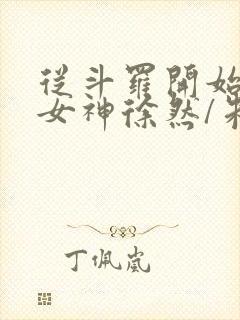 從斗羅開始
女神徐然/
丁佩嵐